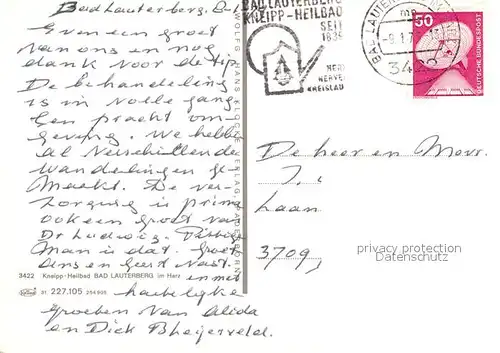 Bad Lauterberg, 8-1
Even een groet
van ons en nog
dank voor de tip
De behandeling
is in volle gang
Een pracht om-
geving. We hebben
al verschillende
wandelingen ge-
maakt. De ver-
zorging is prima
ook een groet van
Dr Ludwig.
man is dat. Groet
Ans en Gert
en met
hartelijke
groeten van Alida
en Dick
3422 Kneipp-Heilbad BAD LAUTERBERG im Harz
31 227.105
BAD LAUTERBERG
KNEIPP-HEILBAD
SEIT
1839
HERZ
NERVEN
KREISLAUF
BAD LAUTERBERG IM
- 9.1.7
342
50
DEUTSCHE BUNDESPOST
De heer en Mevr.
J.
Laan
3709,
privacy protection
Datenschutz